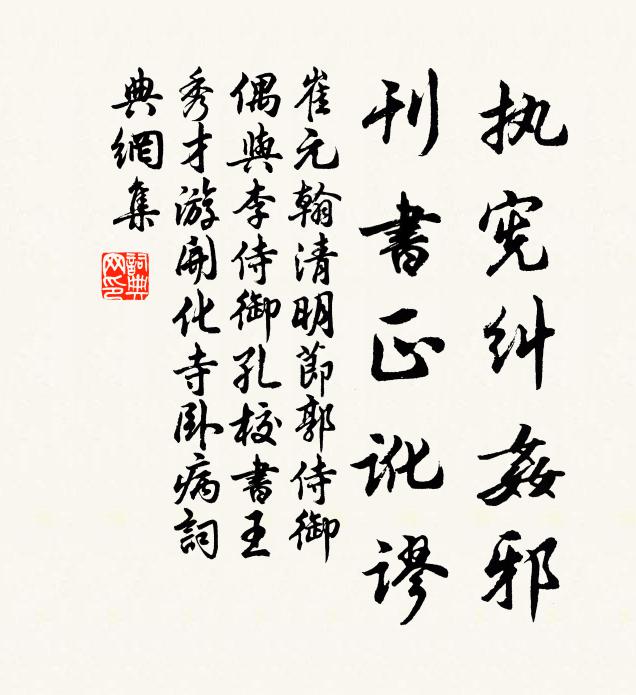 执宪纠姦邪
刊書正讹谬
崔元翰清明節郭侍御
偶與李侍御孔校書王
秀才游開化寺卧病詞
典網集
詞典网印